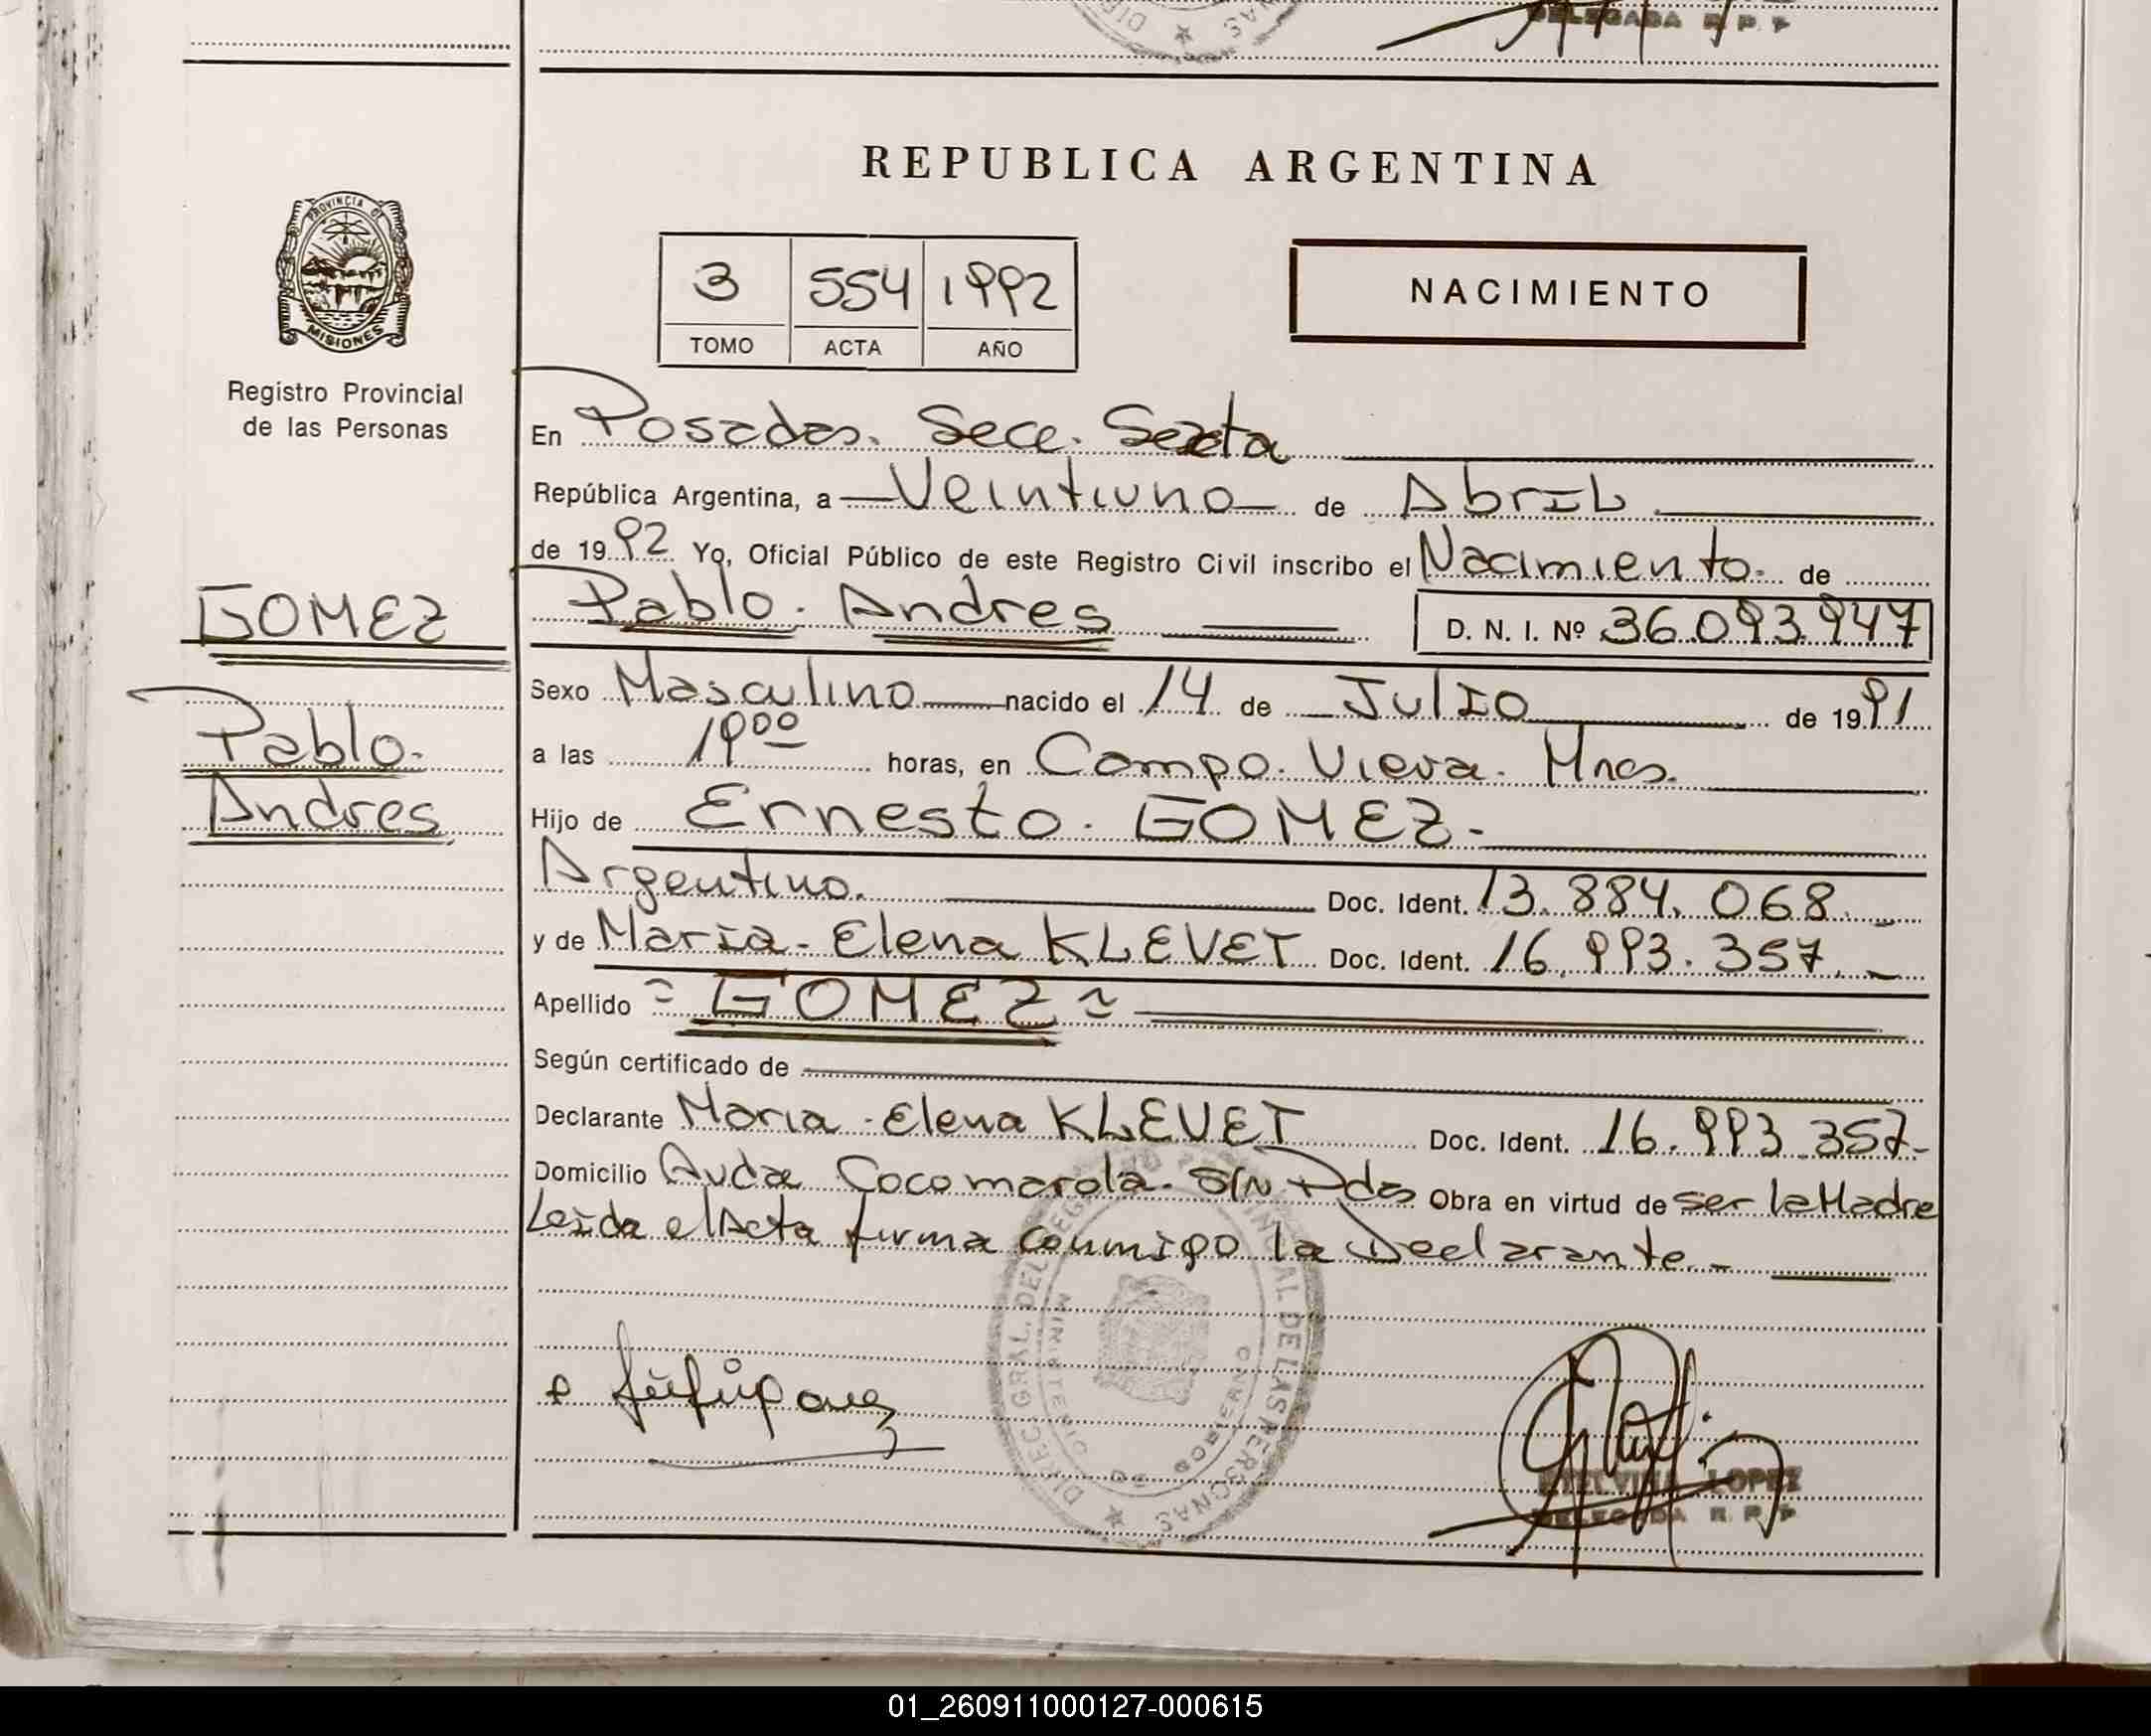 DELEGADA R. P. P
REPUBLICA ARGENTINA
PROVINCIA DE
MISIONES
Registro Provincial
de las Personas
3 554 1992
TOMO ACTA AÑO
NACIMIENTO
En Posadas. Secc. Sexta
República Argentina, a Veintiuno de Abril
de 1992 Yo, Oficial Público de este Registro Civil inscribo el Nacimiento. de
GOMEZ
Pablo. Andres D. N. I. Nº 36.093.947
Sexo Masculino nacido el 14 de Julio de 1991
Pablo.
Andres
a las 19⁰⁰ horas, en Campo. Viera. Mnes.
Hijo de Ernesto. GOMEZ.
Argentino. Doc. Ident. 13.884.068.
y de Maria. Elena KLEVET Doc. Ident. 16.993.357.
Apellido = GOMEZ =
Según certificado de
Declarante Maria. Elena KLEVET Doc. Ident. 16.993.357-
Domicilio Avda Cocomarola. S/N Pdas Obra en virtud de ser la Madre
Leida el Acta firma conmigo la Declarante.-
DIREC. GRAL. DEL REG. PROVINCIAL DE LAS PERSONAS
MINISTERIO DE GOBIERNO
LOPEZ
DELEGADA R. P. P
01_260911000127-000615